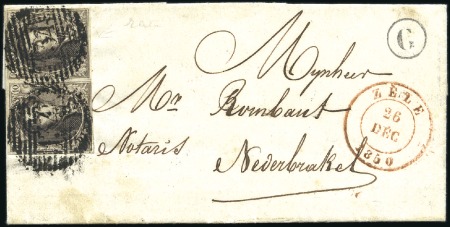 G
Mynheer
Mr Rombaut
Notaris
Nederbrakel
ZELE
26
DEC
1850